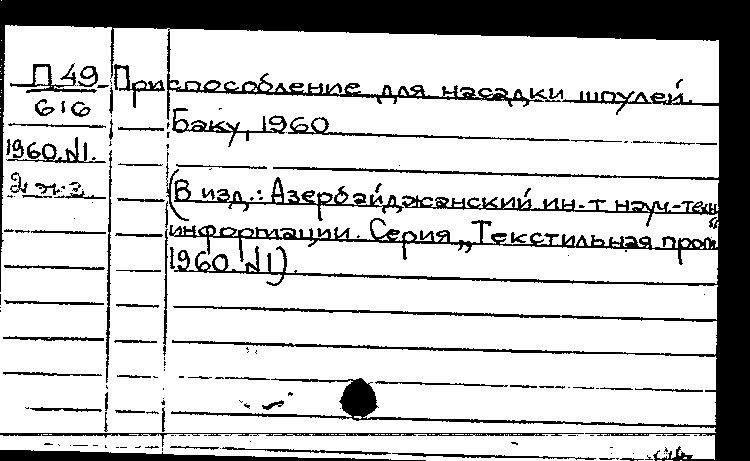 П 49 Приспособление для насадки шпулей.
616
Баку, 1960
1960.N1.
2 экз.
(В изд.: Азербайджанский ин-т науч.-техн
информации. Серия „Текстильная пром"
1960. N1).